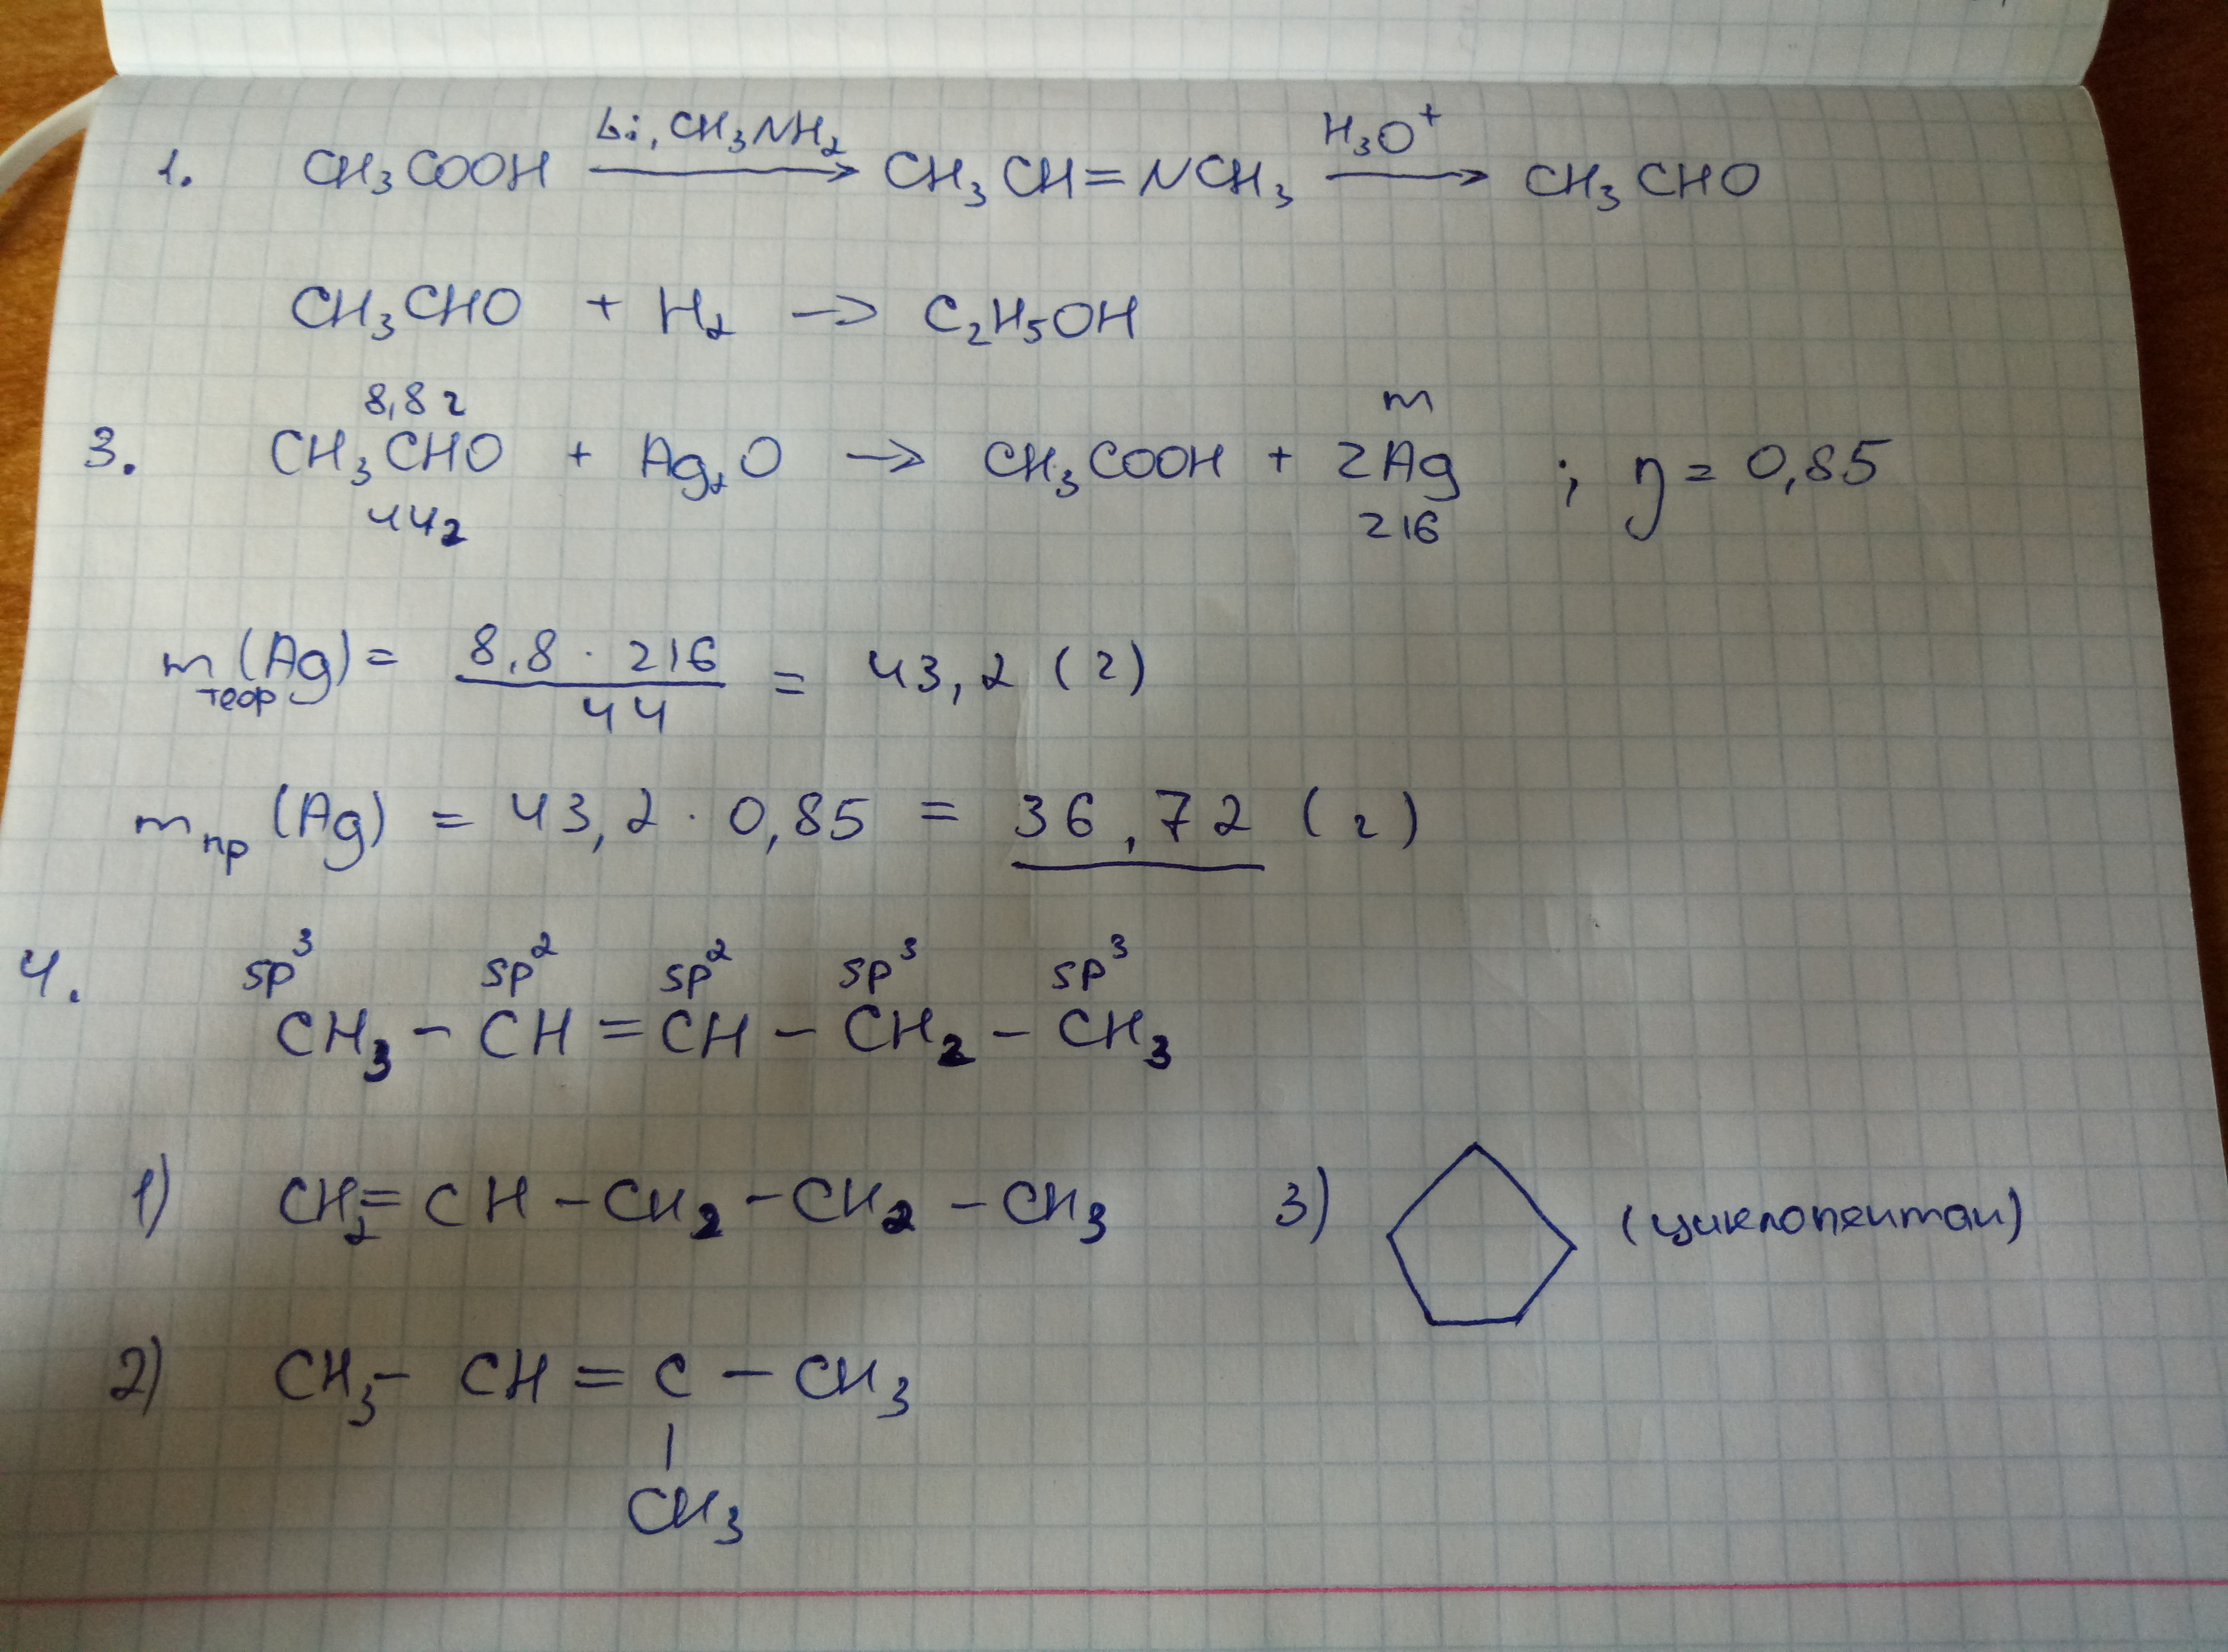 1. CH₃COOH —Li, CH₃NH₂→ CH₃CH=NCH₃ —H₃O⁺→ CH₃CHO
CH₃CHO + H₂ → C₂H₅OH
8,8 г m
3. CH₃CHO + Ag₂O → CH₃COOH + 2Ag ; η = 0,85
44г 216
m теор (Ag) = 8,8 · 216 / 44 = 43,2 (г)
m пр (Ag) = 43,2 · 0,85 = 36,72 (г)
sp³ sp² sp² sp³ sp³
4. CH₃ – CH = CH – CH₂ – CH₃
1) CH₂ = CH – CH₂ – CH₂ – CH₃ 3) (циклопентан)
2) CH₃ – CH = C – CH₃
|
CH₃